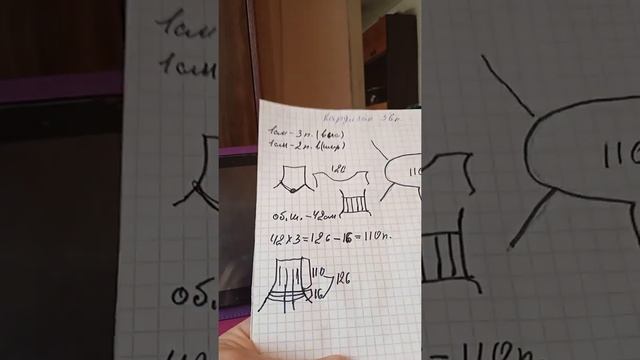 1см - 3 п. (выс)
1см - 2 п. в(шир)
120
110
об.ш. - 42 см
42 х 3 = 126 - 16 = 110 п.
110
126
16